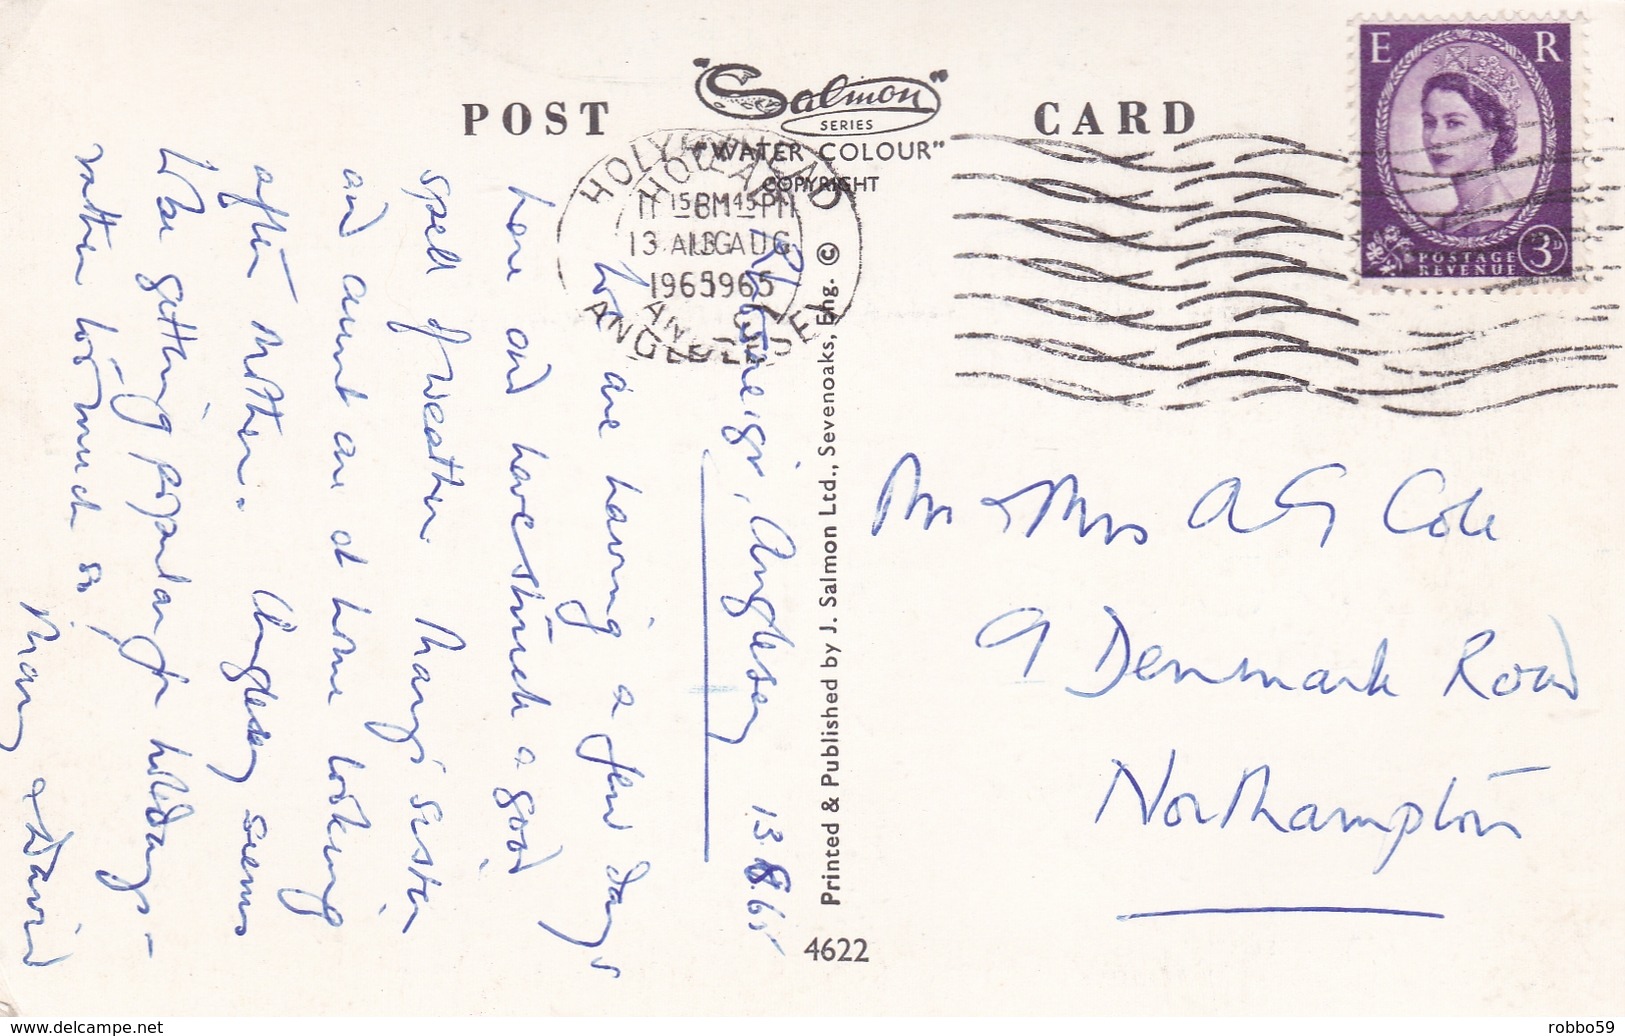 POST CARD
"Salmon"
SERIES
"WATER COLOUR"
COPYRIGHT
E R
POSTAGE
REVENUE
3D
HOLYHEAD
13 AUG
1965
ANGLESEY
Rhosneigr, Anglesey 13.8.65
We are having a few days
here and have struck a good
spell of weather. Mary's sister
and aunt are at home looking
after Mother. Anglesey seems
to be getting popular for holidays -
rather too much so
Mary & David
Printed & Published by J. Salmon Ltd., Sevenoaks, Eng. ©
4622
Mr & Mrs A G Cole
9 Denmark Road
Northampton
delcampe.net
robbo59